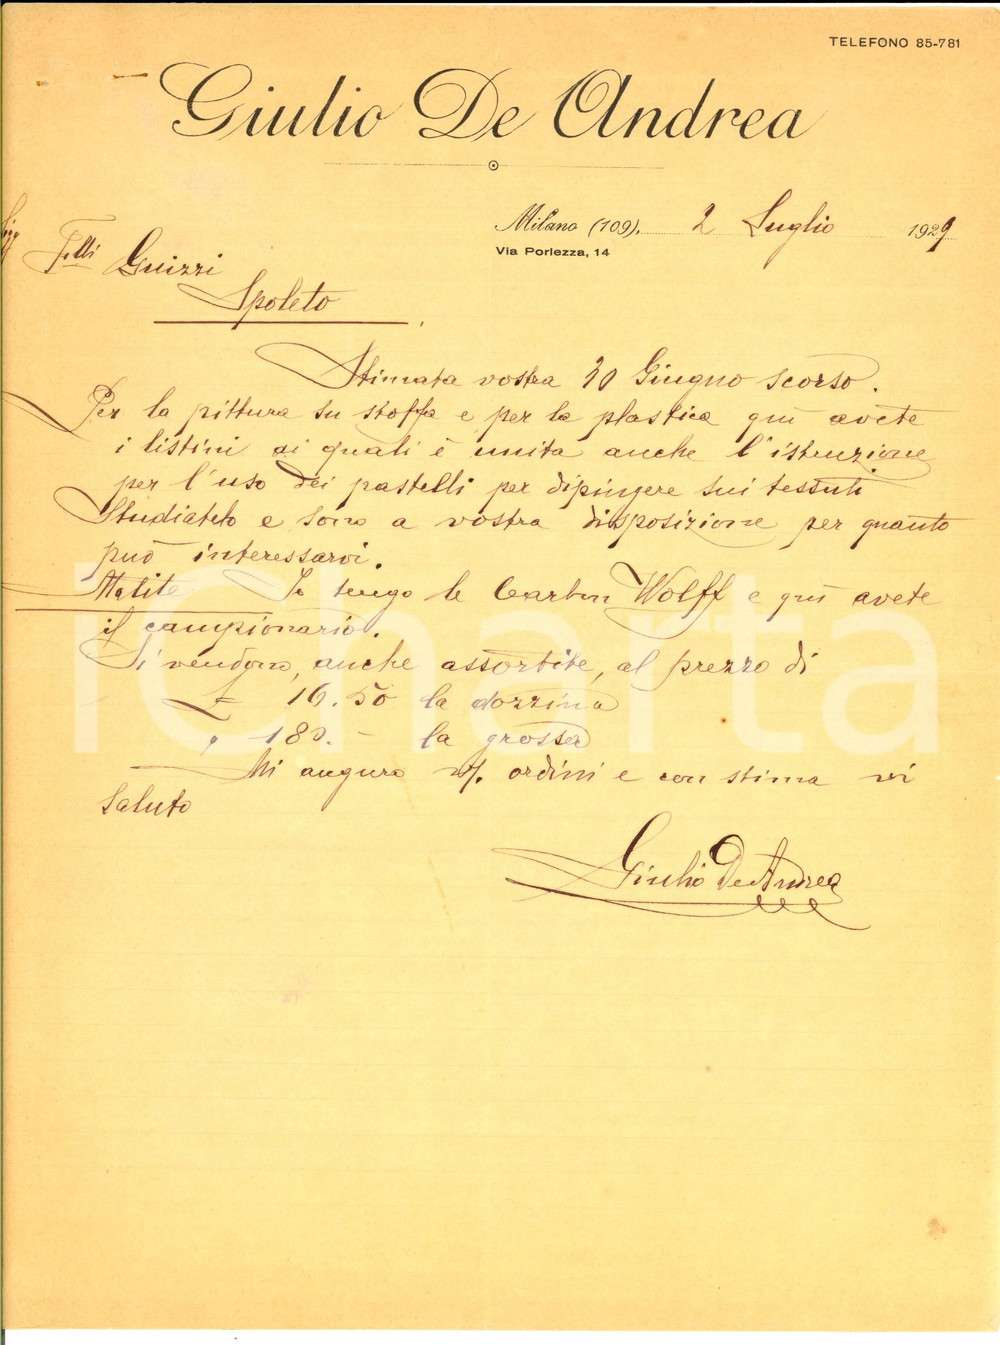 TELEFONO 85-781
Giulio De Andrea
Milano (109). 2 Luglio 1929
Via Porlezza, 14
Sigg
F.lli Guizzi
Spoleto
Stimata vostra 30 Giugno scorso.
Per la pittura su stoffa e per la plastica quì avete
i listini ai quali è unita anche l'istruzione
per l'uso dei pastelli per dipingere sui tessuti
Studiatelo e sono a vostra disposizione per quanto
può interessarvi.
Matite Io tengo le Carbon Wolff e quì avete
il campionario.
Si vendono, anche assortite, al prezzo di
£ 16.50 la dozzina
" 180.- la grossa
Mi auguro vs/. ordini e con stima vi
saluto
Giulio De Andrea
iCharta